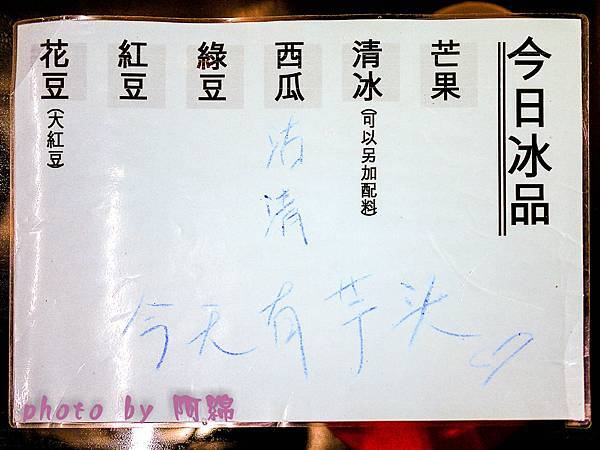 今日冰品
芒果
清冰(可以另加配料)
西瓜
沽清
綠豆
紅豆
花豆(大紅豆)
今天有芋头
photo by 阿綿